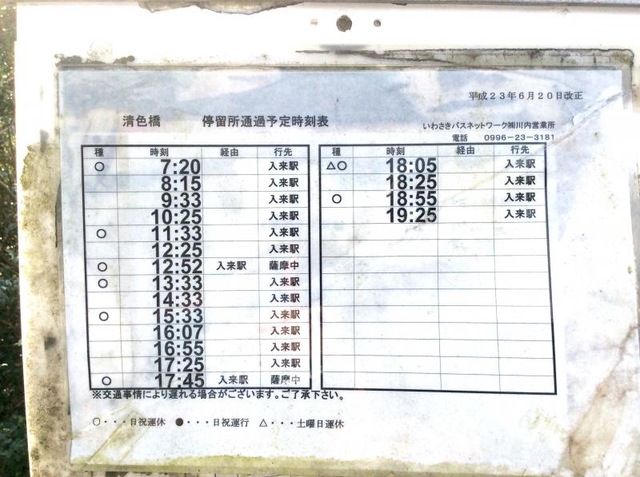 平成23年6月20日改正
清色橋 停留所通過予定時刻表
いわさきバスネットワーク㈱川内営業所
電話 0996-23-3181
種 時刻 経由 行先
○ 7:20 入来駅
8:15 入来駅
9:33 入来駅
10:25 入来駅
○ 11:33 入来駅
12:25 入来駅
○ 12:52 入来駅 薩摩中
○ 13:33 入来駅
14:33 入来駅
○ 15:33 入来駅
16:07 入来駅
16:55 入来駅
17:25 入来駅
○ 17:45 入来駅 薩摩中
種 時刻 経由 行先
△○ 18:05 入来駅
18:25 入来駅
○ 18:55 入来駅
19:25 入来駅
※交通事情により遅れる場合がございます。ご了承下さい。
○・・・日祝運休 ●・・・日祝運行 △・・・土曜日運休